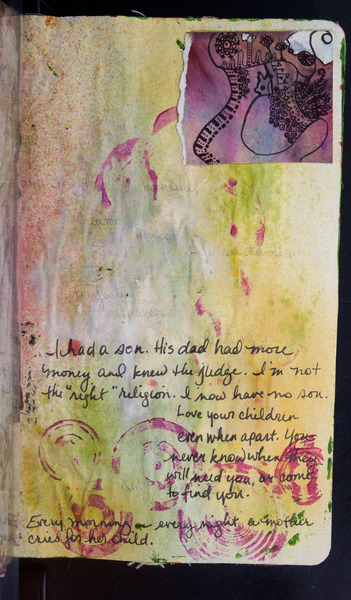 I had a son. His dad had more
money and knew the judge. I'm not
the "right" religion. I now have no son.
Love your children
even when apart. You
never know when they
will need you, or come
to find you.
Every morning – every night, a mother
cries for her child.